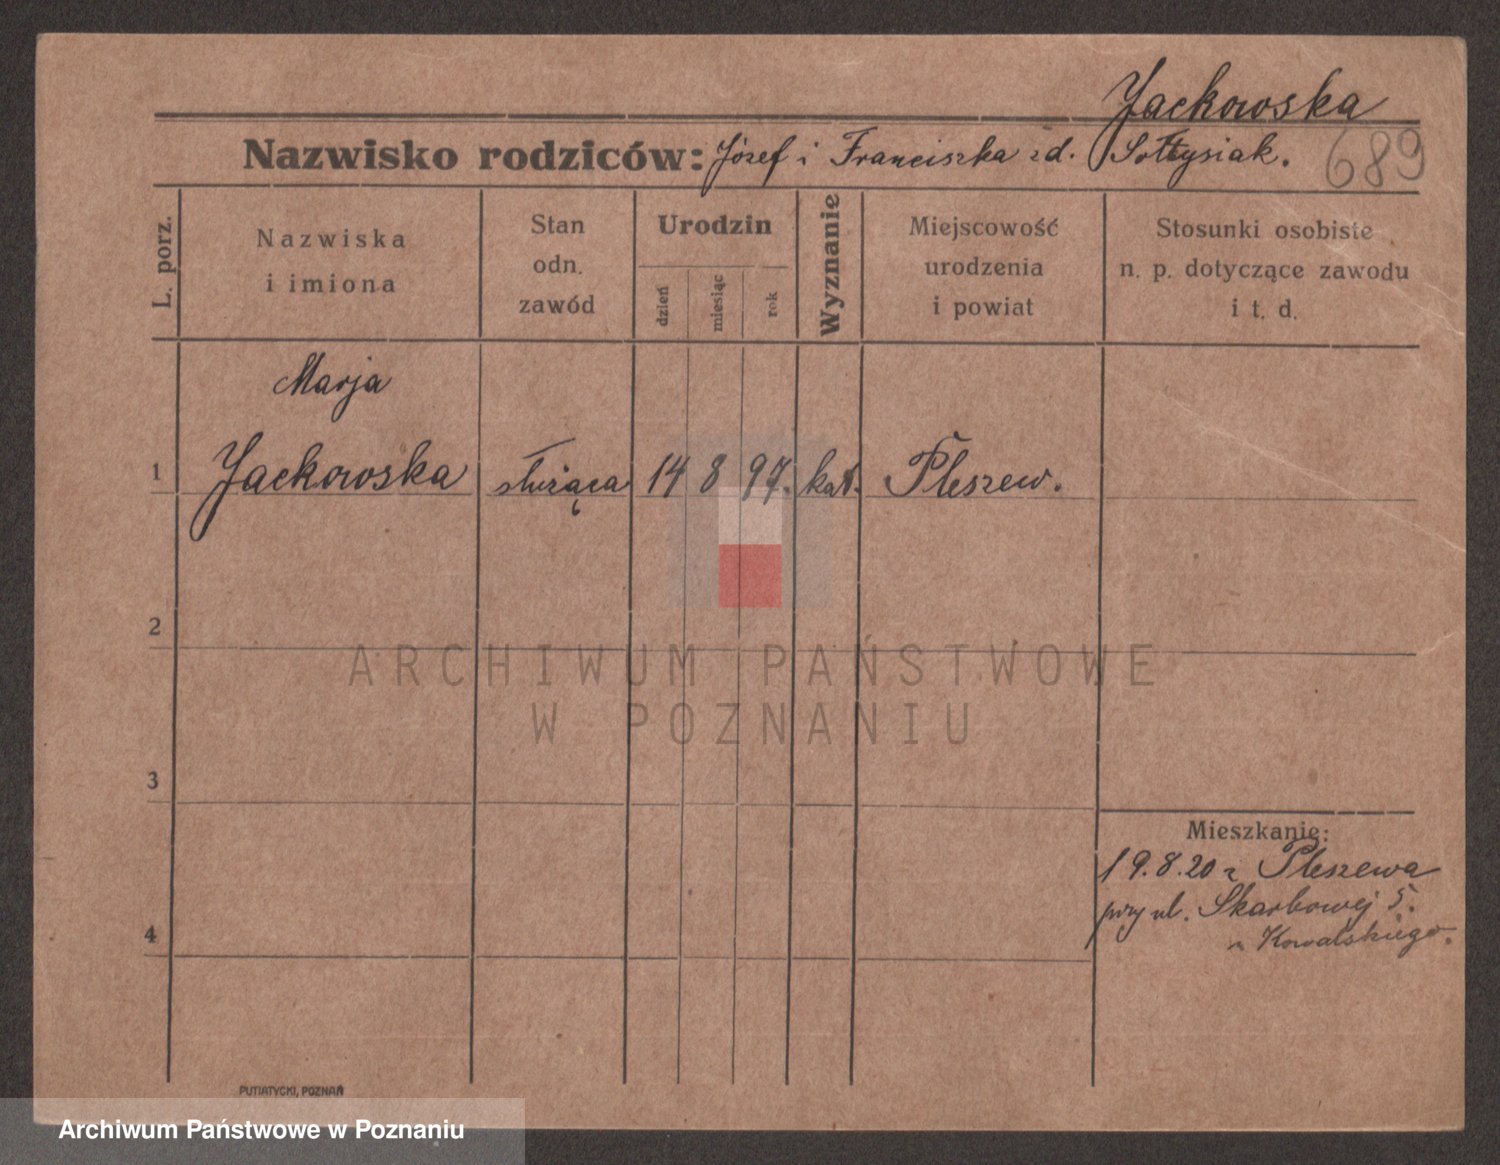 Jackowska
Nazwisko rodziców: Józef i Franciszka zd. Sołtysiak. 689
L. porz.
Nazwiska
i imiona
Stan
odn.
zawód
Urodzin
dzień
miesiąc
rok
Wyznanie
Miejscowość
urodzenia
i powiat
Stosunki osobiste
n. p. dotyczące zawodu
i t. d.
Marja
1 Jackowska służąca 14 8 97. kat. Pleszew.
2
ARCHIWUM PAŃSTWOWE
W POZNANIU
3
Mieszkanie:
19.8.20 z Pleszewa
przy ul. Skarbowej 5.
4
u Kowalskiego.
PUTIATYCKI, POZNAŃ
Archiwum Państwowe w Poznaniu